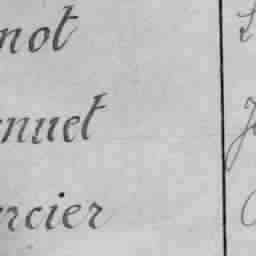 not
nuet
rcier